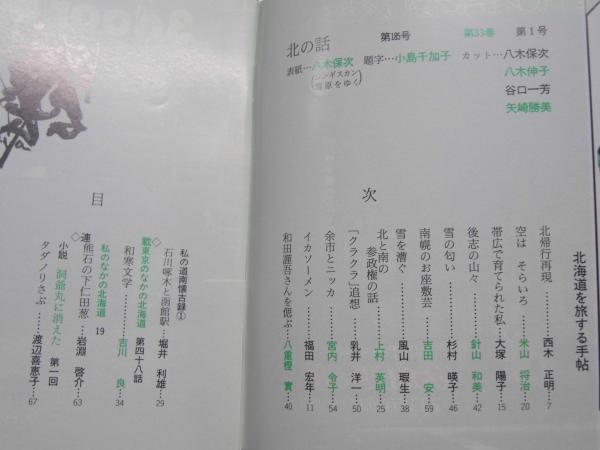 北の話 第186号 第33巻 第1号
表紙…八木保次
(ジンギスカン
雪原をゆく)
題字…小島千加子
カット…八木保次
八木伸子
谷口一芳
矢崎勝美
目 次
北海道を旅する手帖
北帰行再現……西木 正明…7
空は そらいろ……米山 将治…20
帯広で育てられた私…大塚 陽子…15
後志の山々……針山 和美…42
雪の匂い……杉村 暎子…46
南幌のお座敷芸……吉田 安…59
雪を漕ぐ……風山 瑕生…38
北と南の
参政権の話……上村 英明…25
「クラクラ」追想……乳井 洋一…50
余市とニッカ……宮内 令子…54
イカソーメン……福田 宏年…11
和田謹吾さんを偲ぶ…八重樫 實…40
私の道南懐古録①
石川啄木と函館駅……堀井 利雄…29
◇連載東京のなかの北海道 第四十八話
和寒文学……吉川 良…34
◇私のなかの北海道 19
熊石の下仁田葱……岩淵 啓介…63
小説 洞爺丸に消えた 第一回
タダノリさぶ……渡辺喜恵子…67